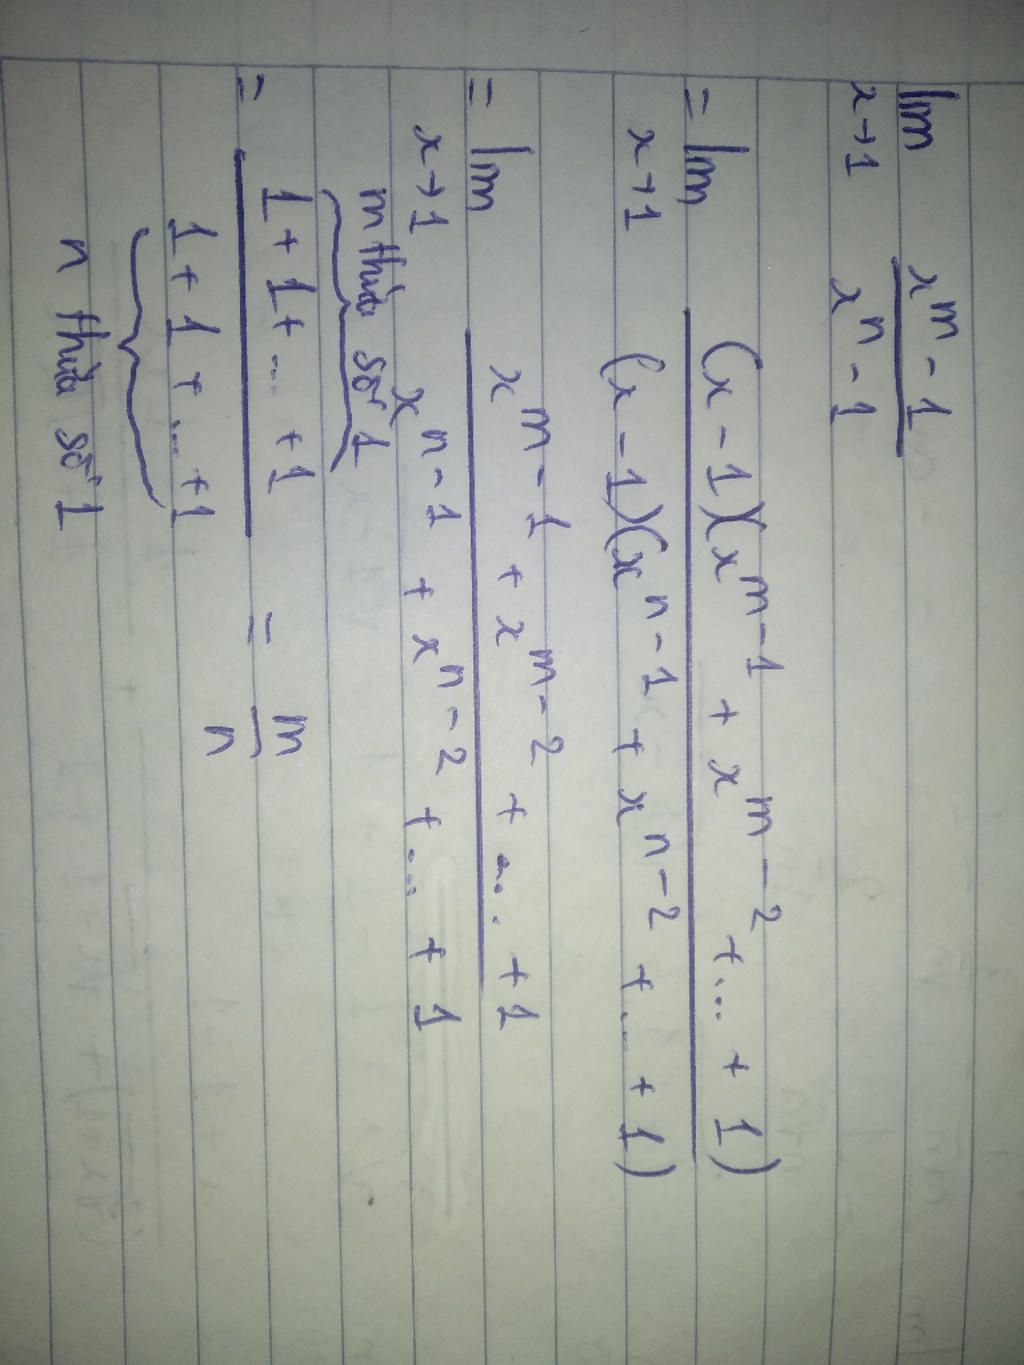 lim x→1 (x^m - 1)/(x^n - 1)
= lim x→1 ((x - 1)(x^{m-1} + x^{m-2} + ... + 1))/((x - 1)(x^{n-1} + x^{n-2} + ... + 1))
= lim x→1 (x^{m-1} + x^{m-2} + ... + 1)/(x^{n-1} + x^{n-2} + ... + 1)
m thừa số 1
= (1 + 1 + ... + 1)/(1 + 1 + ... + 1) = m/n
n thừa số 1